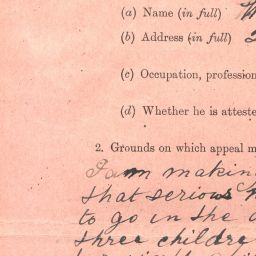 (a) Name (in full)
(b) Address (in full)
(c) Occupation, profession
(d) Whether he is atteste
2. Grounds on which appeal m
I am making
that serious
to go in the
three childre